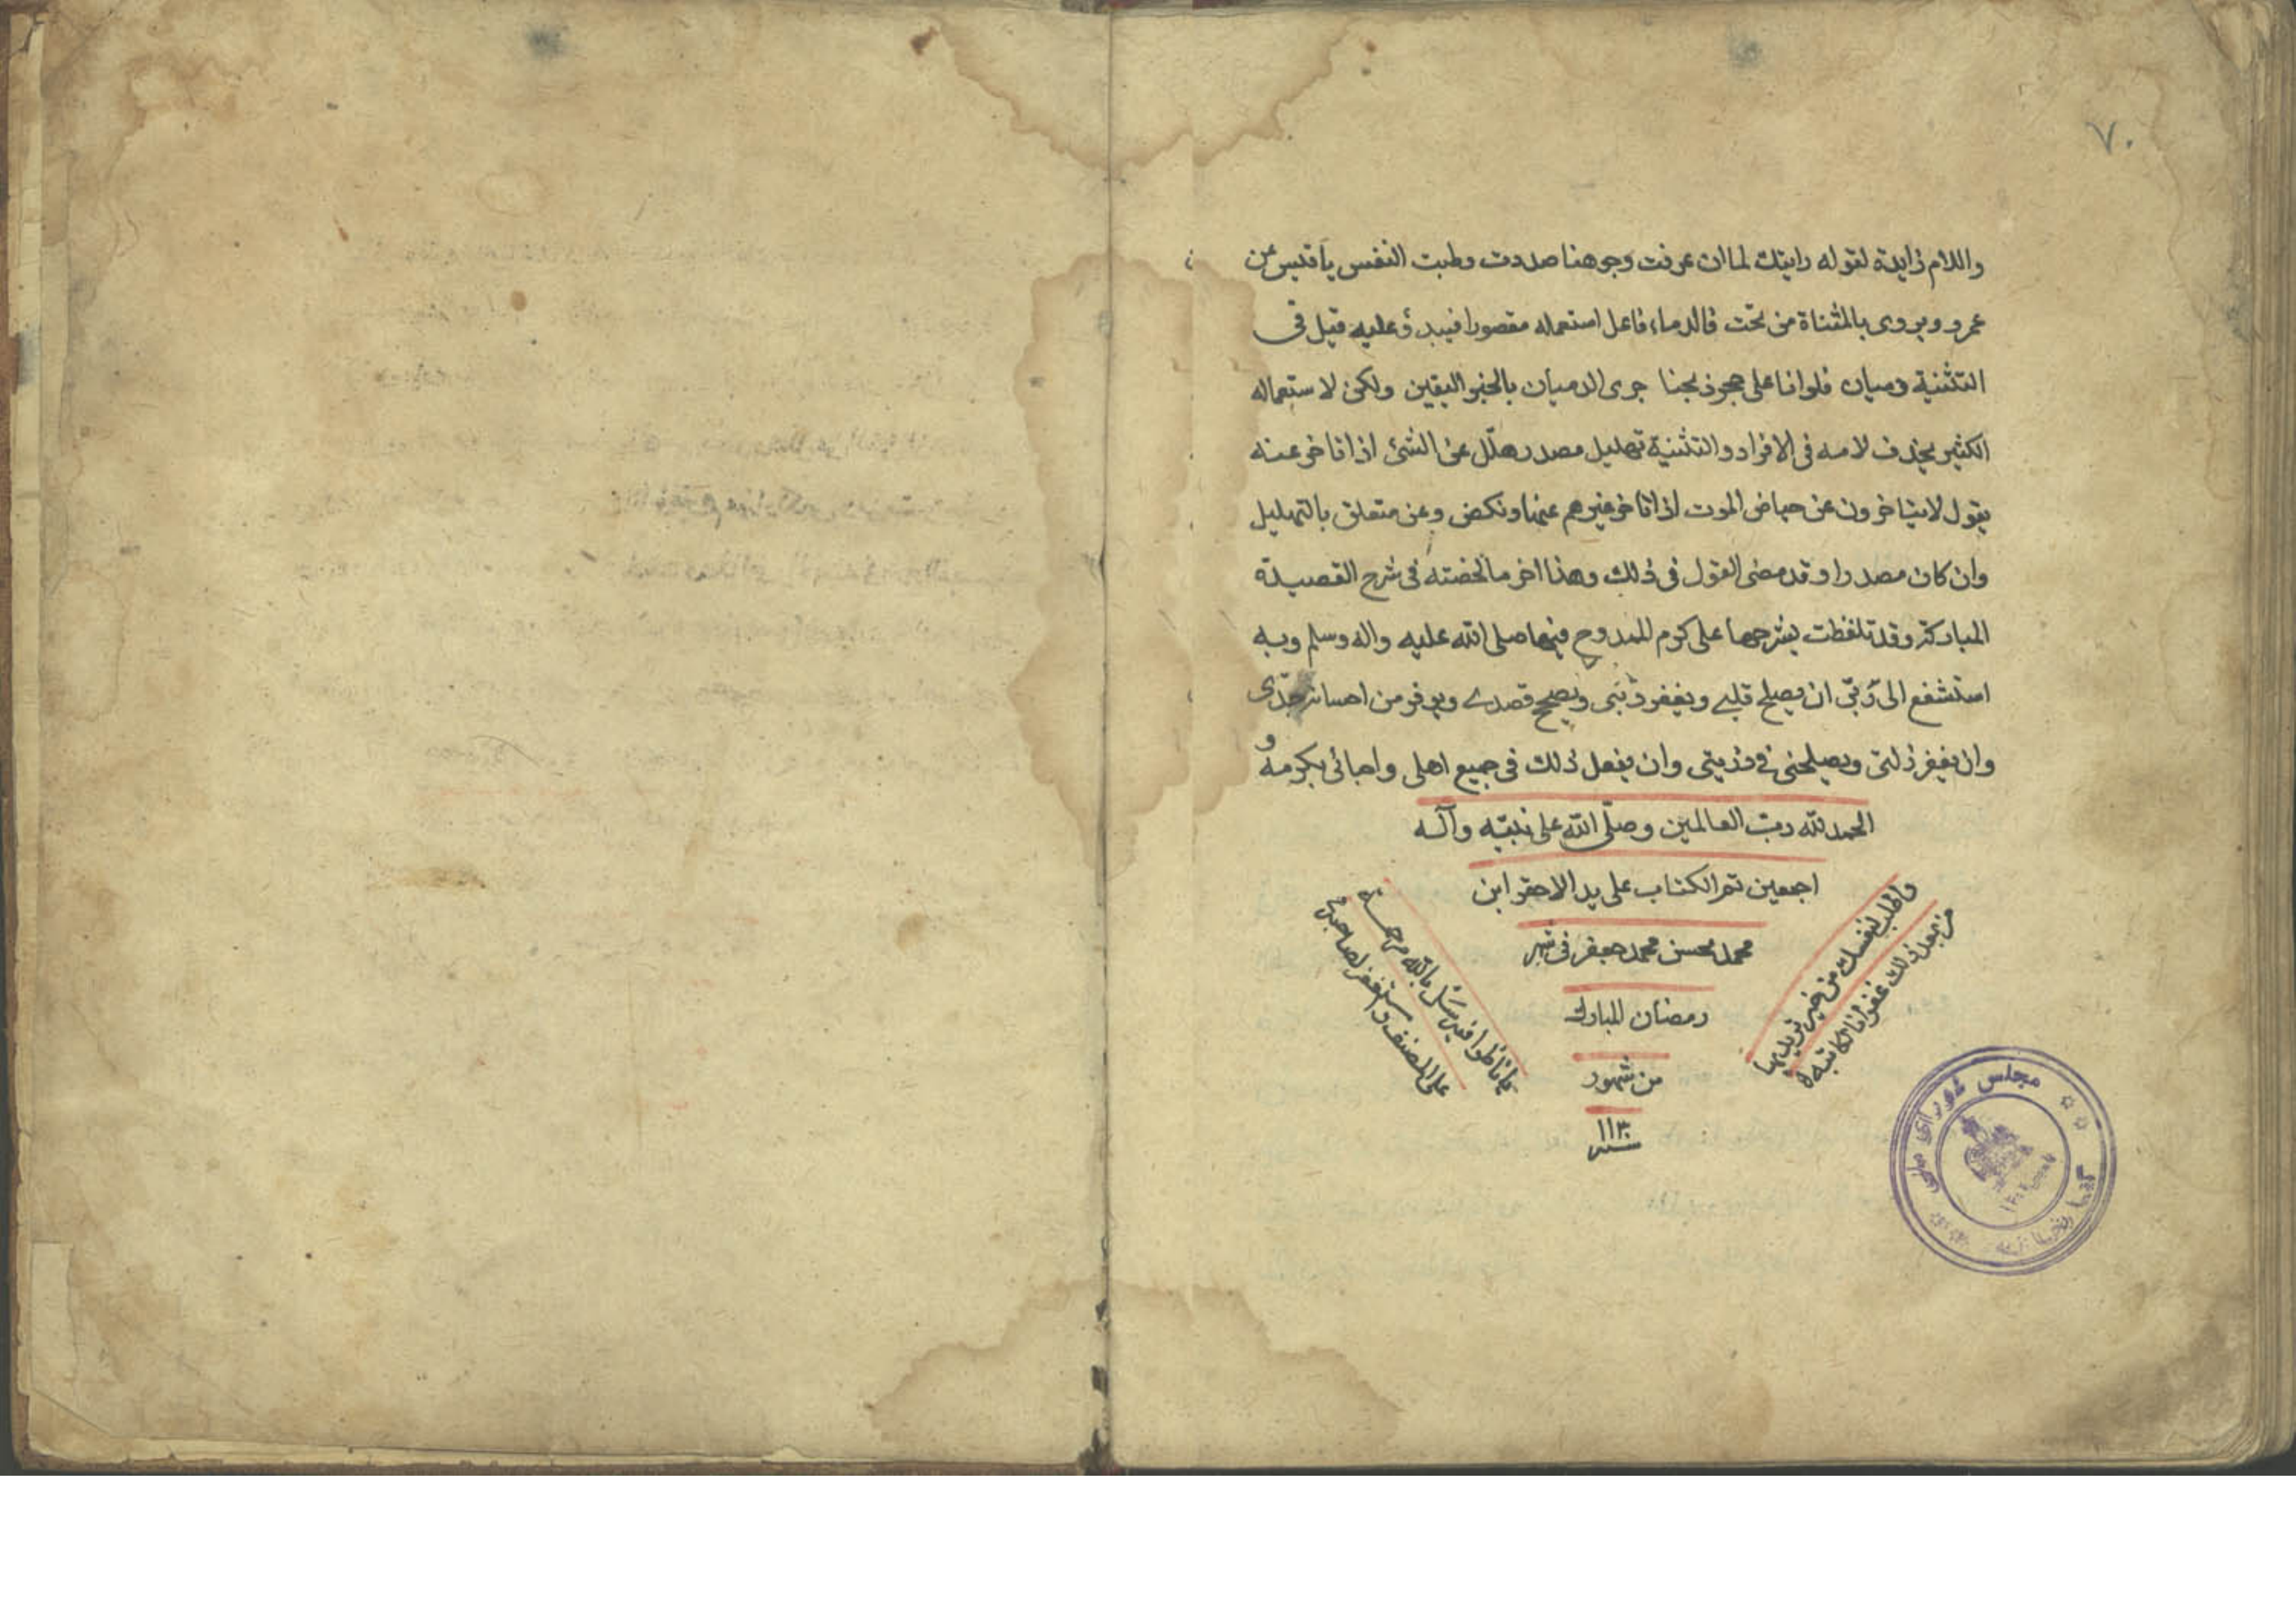 ٧٠
واللام زايدة لقوله رايتك لما ان عرفت وجوهنا صددت وطبت النفس يا قيس عن
عمرو ويروى بالمثناة من تحت فالدماء فاعل استعماله مقصورا فيبد وعليه قيل في
التثنية دميان فلو انا على حجر ذبحنا جرى الدميان بالخبر اليقين ولكن لاستعماله
الكثير بحذف لامه في الافراد والتثنية تهليل مصدر هلّل عن الشئ اذا تاخر عنه
يقول لا يتاخرون عن حياض الموت اذا تاخر غيرهم عنها ونكص وعن متعلق بالتهليل
وان كان مصدرا وقد مضى القول في ذلك وهذا اخر ما لخصته في شرح القصيدة
المباركة وقد تلفظت بشرحها على كرم الممدوح فيها صلى الله عليه واله وسلم وبه
استشفع الى ربّي ان يصلح قلبي ويغفر ذنبى ويصحح قصدي ويوفر من احسانه جدّى
وان يغفر زلتى ويصلحنى في ذريتى وان يفعل ذلك في جميع اهلى واحبائى بكرمه و
الحمد لله رب العالمين وصلّى الله على نبيّه وآله
اجمعين تم الكتاب على يد الاحقر ابن
محمد محسن محمد جعفر فى شهر
رمضان المبارك
من شهور
سنه ١١٣٠
يا ناظرا فيه سَل بالله مرحمة
على المصنف واستغفر لصاحبه
واطلب لنفسك من خير تريد بها
من بعد ذلك غفرانا لكاتبه
مجلس شورای ملی